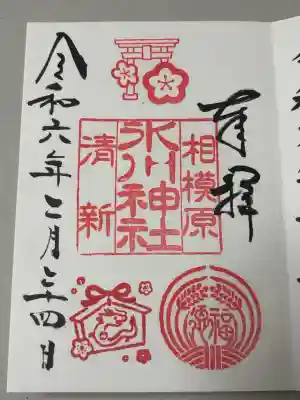 奉拝
相模原
氷川神社
清新
福徳
令和六年二月二十四日